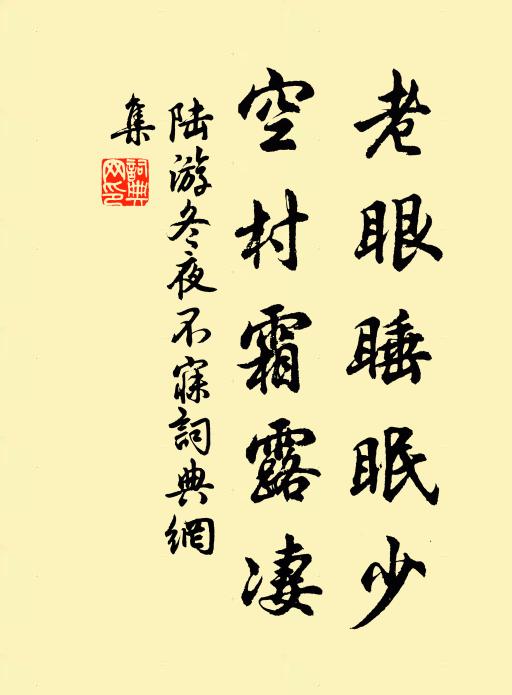 老眼睡眠少
空村霜露凄
陆游冬夜不寐詞典網
集
詞典
网印